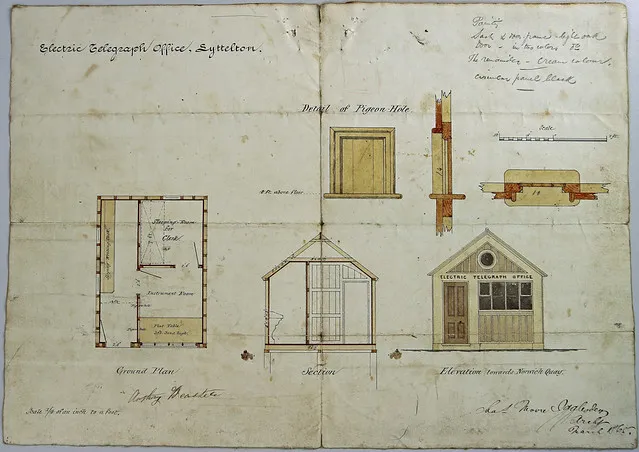 Electric Telegraph Office. Lyttelton.
Painting
Sash & door frames light oak
Door - in two colors
The remainder - Cream colour.
circular panel black
Detail of Pigeon Hole
Scale
4 ft. above floor
Sleeping Room
for
Clerk
Instrument Room
Flat Table
Ground Plan
Section
ELECTRIC TELEGRAPH OFFICE
Elevation towards Norwich Quay.
Scale 3/8 of an inch to a foot.
Archt
March